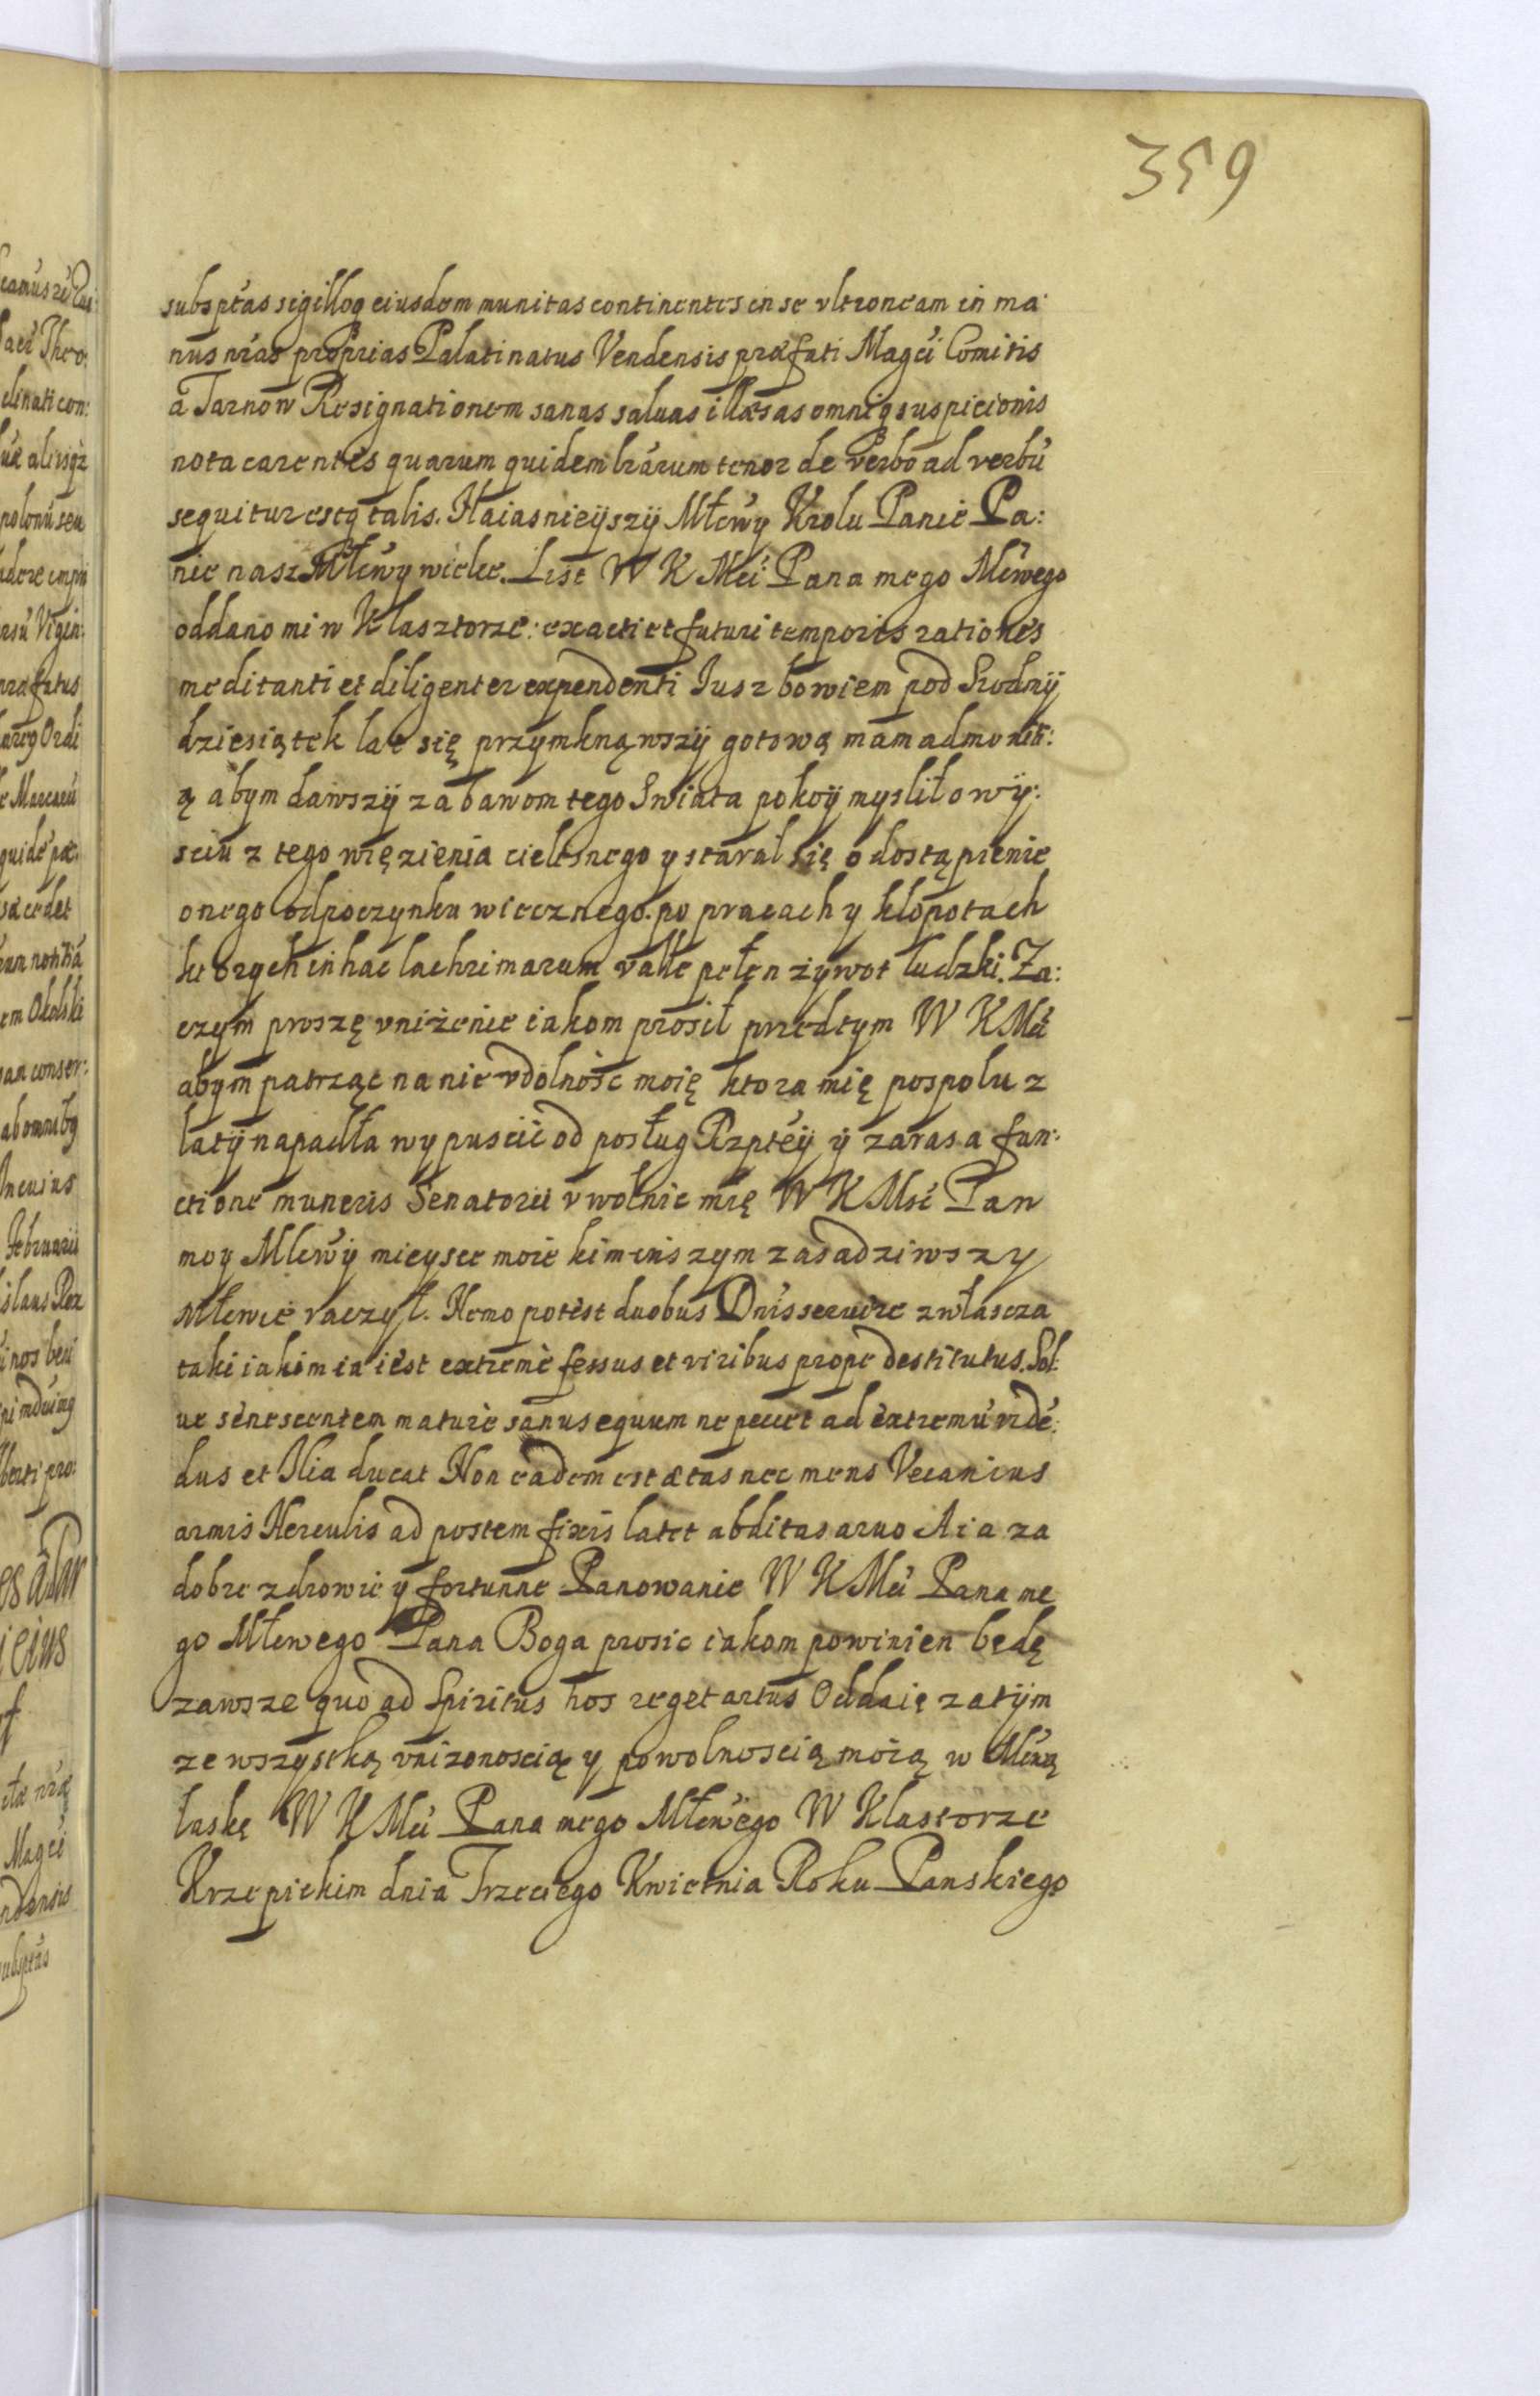 359
subsptas sigilloq eiusdem munitas continentes in se vltroneam in ma:
nus nras proprias Palatinatus Vendensis præfati Magci Comitis
a Tarnow Resignationem sanas saluas illæsas omniq suspicionis
nota carentes quarum quidem lrarum tenor de verbo ad verbū
sequitur estq talis. Naiasnieÿszÿ Młcẃy Krolu Panie Pa:
nie nasz Młcẃy wielce. List W K Mci Pana mego Mcẃego
oddano mi w Klasztorze: exacti et futuri temporis rationes
meditanti et diligenter expendenti Iusz bowiem pod Siodmÿ
dziesiątek lat się przymknąwszÿ gotową mam admoniti:
ą abym dawszÿ zabawom tego Swiata pokoÿ myslił o wÿ:
sciu z tego więzienia cielesnego y starał się o dostąpienie
onego odpoczynku wiecznego. po pracach y kłopotach
ktorych in hac lachrimarum valle pełen żywot ludzki. Za:
czym proszę vniżenie iakom prosił przedtym W K Mci
abym patrząc na nie vdolnosc moię ktora mię pospolu z
latÿ napadła wypuscić od posług Rzpteÿ ÿ zaras a fun:
ctione muneris Senatorii vwolnic mię W K Msc Pan
moy Mlcẃÿ mieysce moie kim inszym zasadziwszy
Młcwie raczył. Nemo potest duobus Dnis seruire zwłascza
taki iakim ia iest extreme fessus et viribus prope destitutus. Sol:
ue senescentem mature sanus equum ne peccet ad extremū ridē:
dus et Ilia ducat Non eadem est ætas nec mens Vecanius
armis Herculis ad postem fixis latet abditas aruo A ia za
dobre zdrowie y fortunne Panowanie W K Mci Pana me
go Młcwego Pana Boga prosic iakom powinien będę
zawsze quo ad Spiritus hos reget artus Oddaię zatÿm
ze wszystką vnizonoscią y powolnoscią moią w Mcẃą
łaskę W K Mci Pana mego Młcẃego W Klastorze
Krzepickim dnia Trzeciego Kwietnia Roku Panskiego